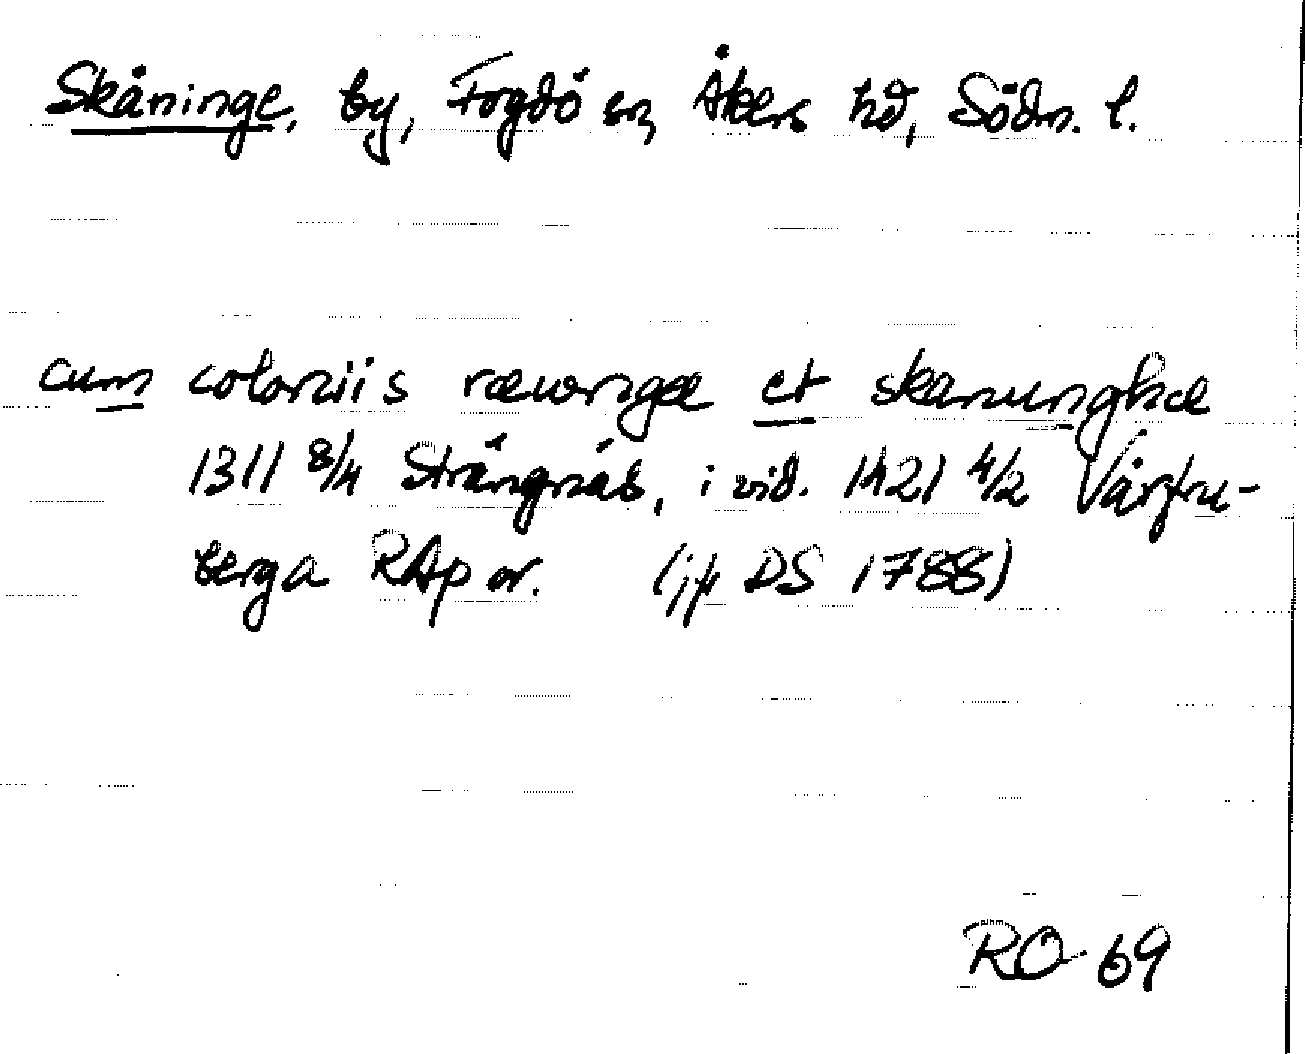 Skåninge, by, Fogdö sn, Åkers hd, Södm. l.
cum coloniis ræwngæ et skanunghæ
1311 8/4 Strängnäs, i vid. 1421 4/2 Vårfru-
berga RAp or. (jfr DS 1788)
RO 69